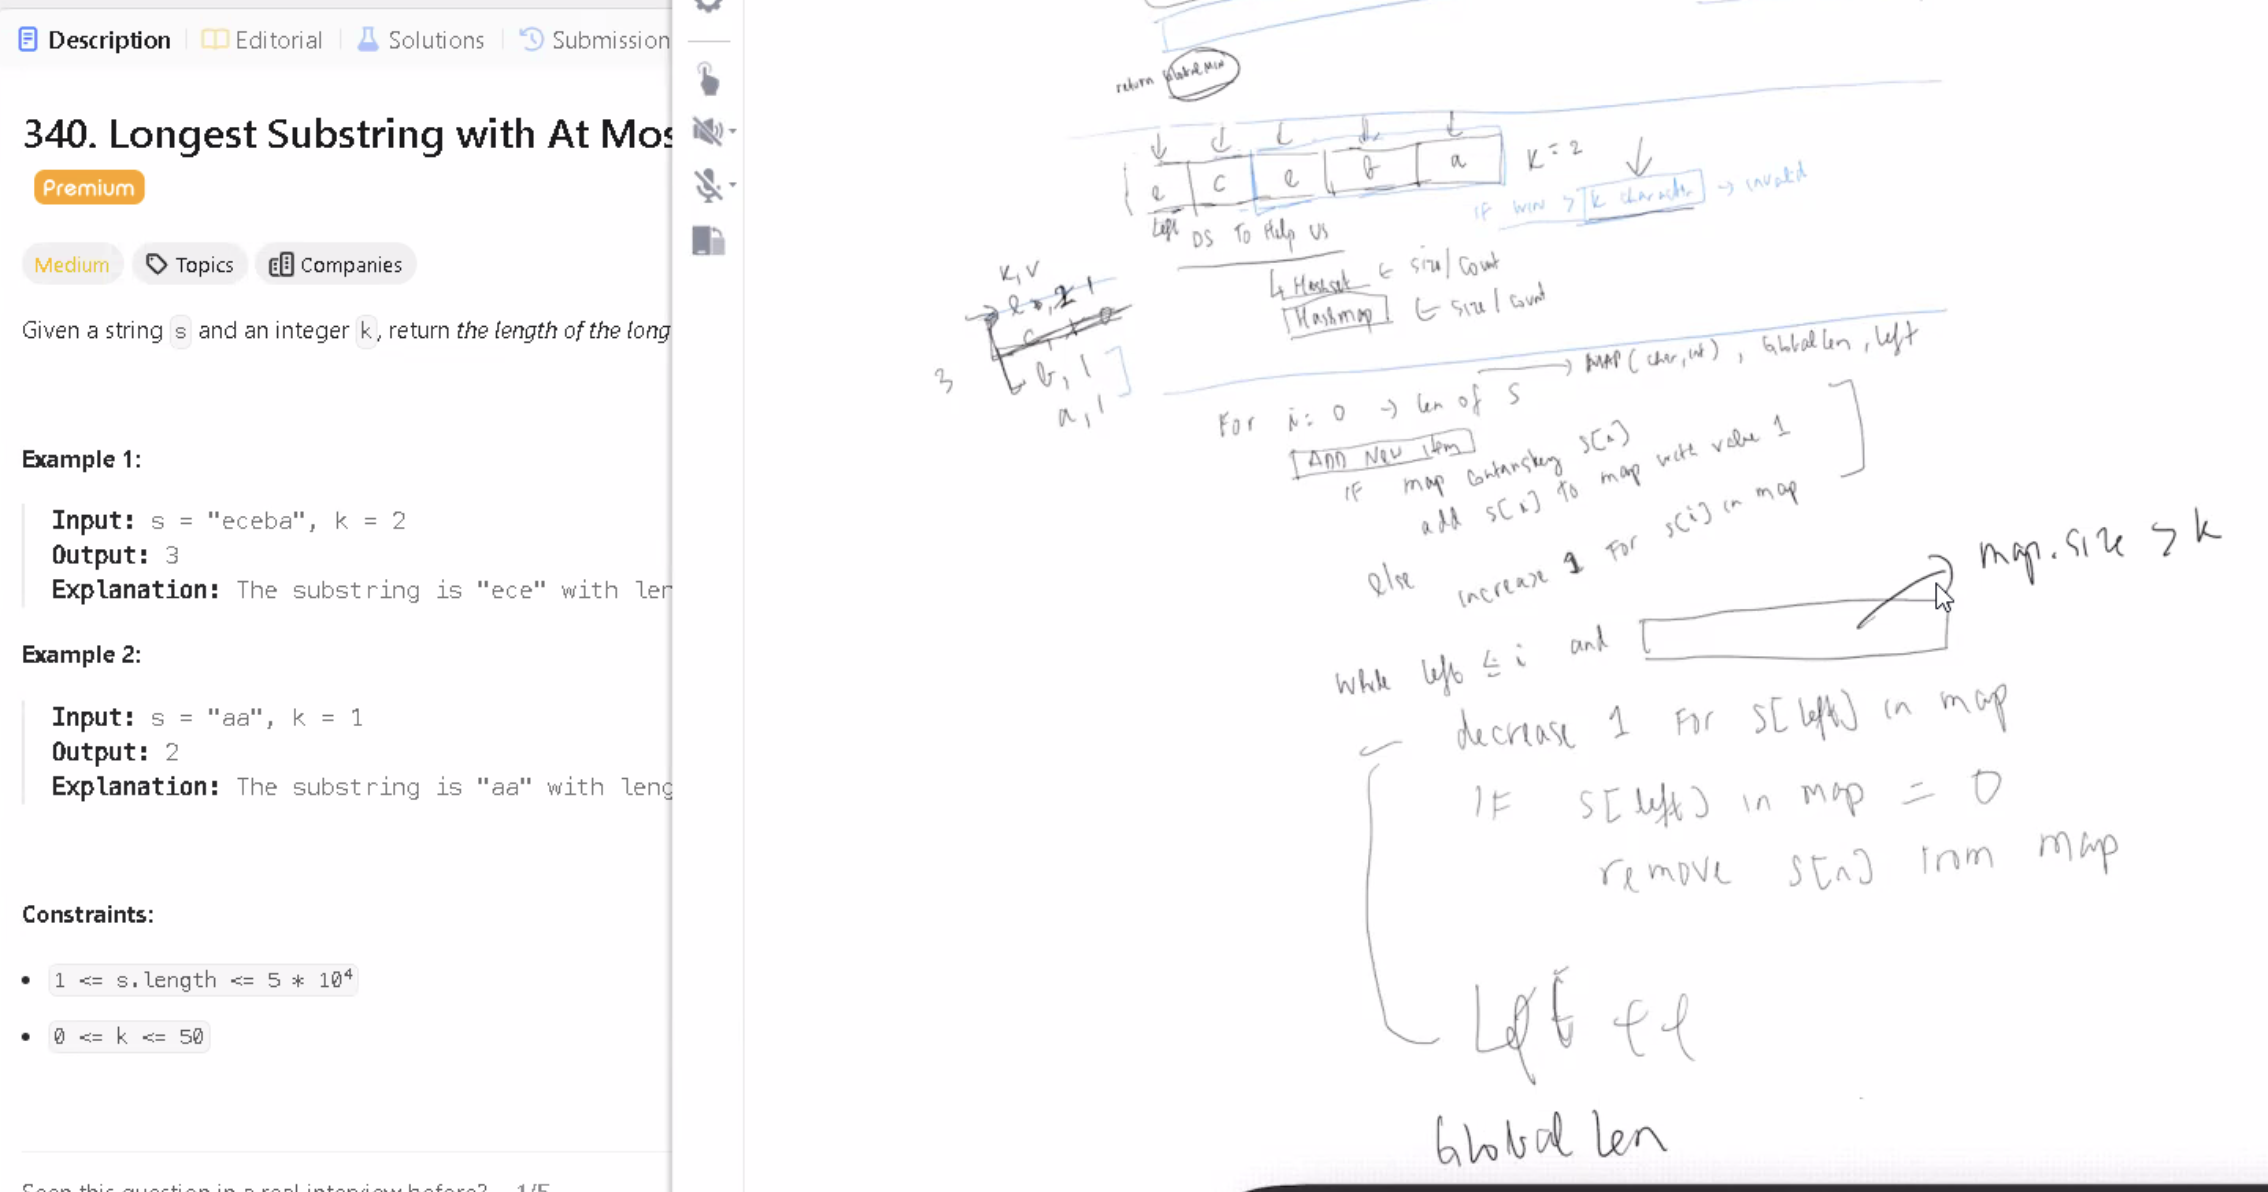 Description
Editorial
Solutions
Submission
340. Longest Substring with At Mos
Premium
Medium
Topics
Companies
Given a string s and an integer k, return the length of the long
Example 1:
Input: s = "eceba", k = 2
Output: 3
Explanation: The substring is "ece" with ler
Example 2:
Input: s = "aa", k = 1
Output: 2
Explanation: The substring is "aa" with leng
Constraints:
1 <= s.length <= 5 * 10⁴
0 <= k <= 50
Seen this question in a real interview before? 1/5
return Global Min
e c e b a K = 2
IF WIN > k character → invalid
Left
DS To Help US
↳ Hashset ← size/count
Hashmap ← size/count
K, V
b, 1
a, 1
3
→ MAP(char, int), Global Len, left
For i: 0 → len of S
ADD New item
IF map containskey S[i]
add S[i] to map with value 1
else increase 1 For S[i] in map
while left ≤ i and
map.size > k
decrease 1 For S[left] in map
IF S[left] in map = 0
remove S[i] from map
Left ++
Global Len